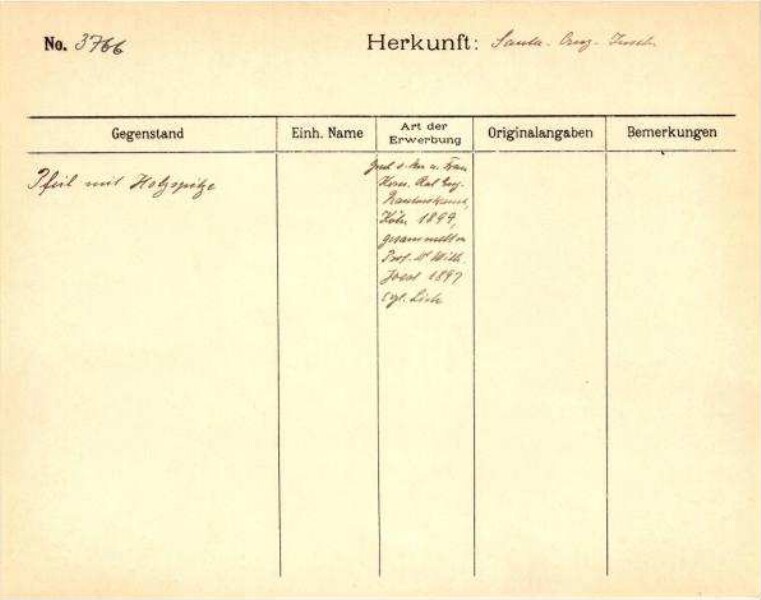 No. 3766
Herkunft: Santa-Cruz-Inseln
Gegenstand
Einh. Name
Art der
Erwerbung
Originalangaben
Bemerkungen
Pfeil mit Holzspitze
u. Frau
Kom. Rat Eug.
Rautenstrauch,
Köln 1899,
gesammelt v.
Prof. Dr Wilh.
Joest 1897
vgl. Liste